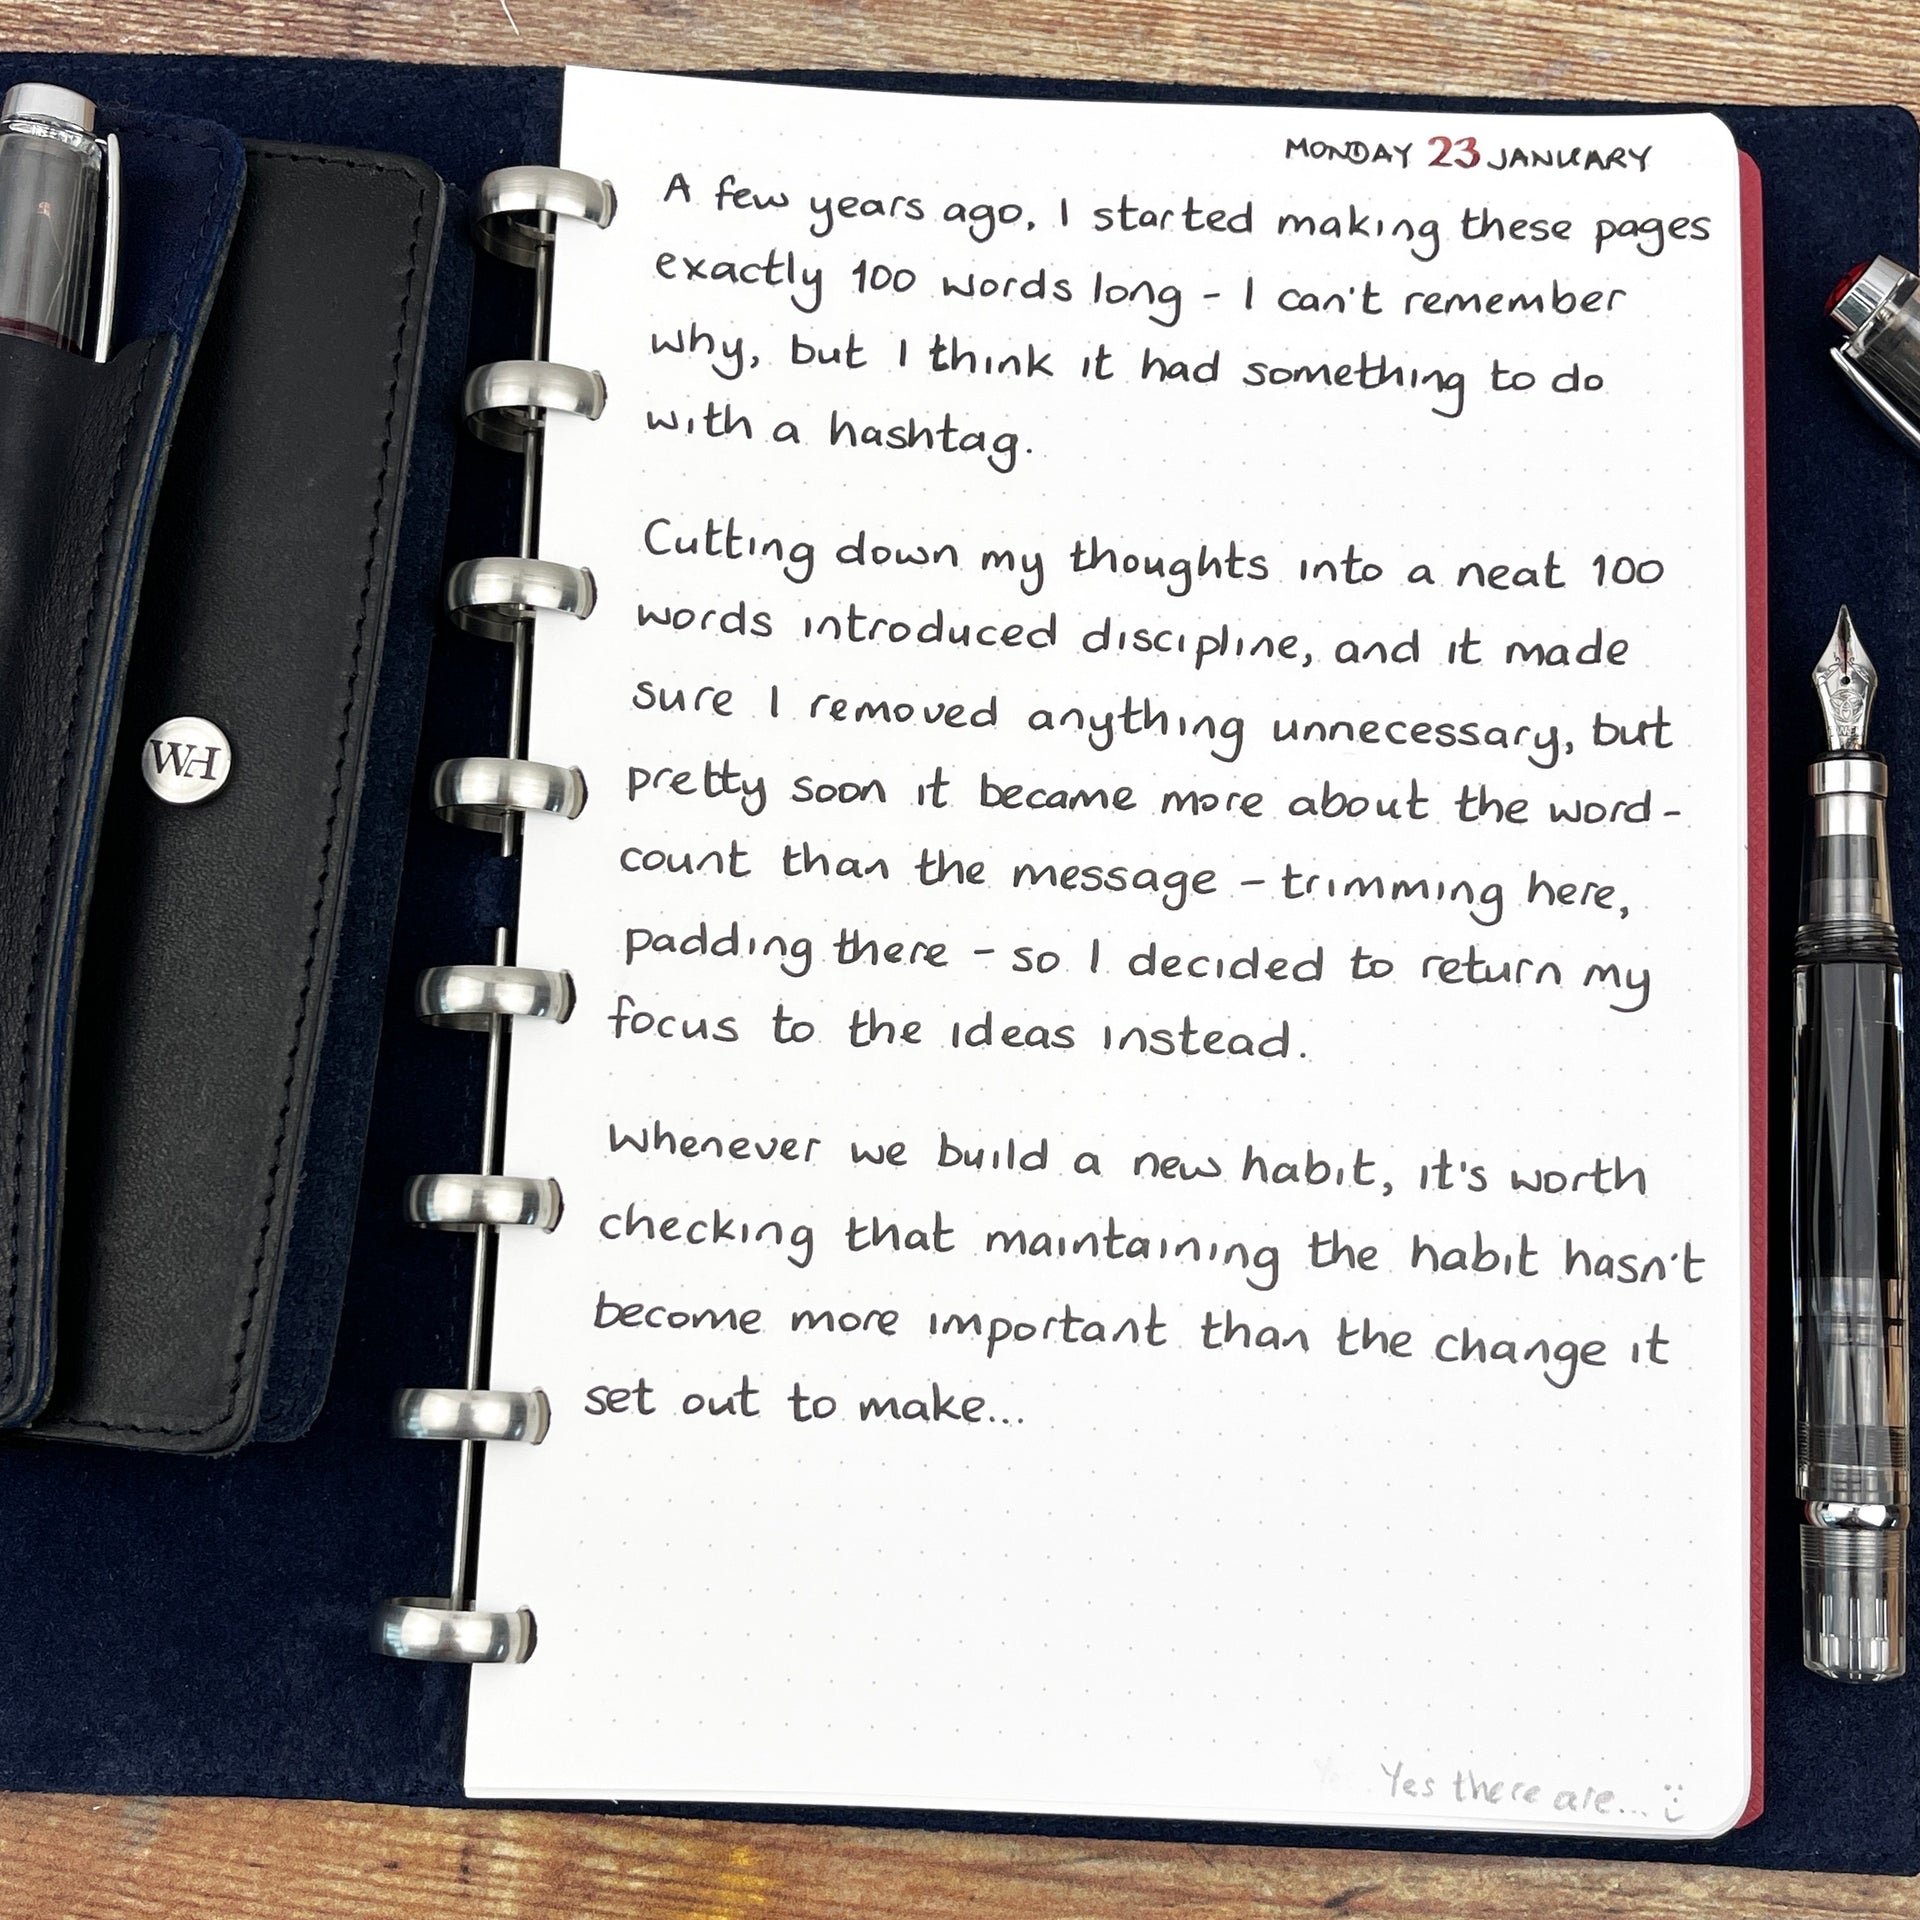 MONDAY 23 JANUARY
A few years ago, I started making these pages
exactly 100 words long - I can't remember
why, but I think it had something to do
with a hashtag.
Cutting down my thoughts into a neat 100
words introduced discipline, and it made
sure I removed anything unnecessary, but
pretty soon it became more about the word-
count than the message - trimming here,
padding there - so I decided to return my
focus to the ideas instead.
Whenever we build a new habit, it's worth
checking that maintaining the habit hasn't
become more important than the change it
set out to make...
Yes there are... :)
WH